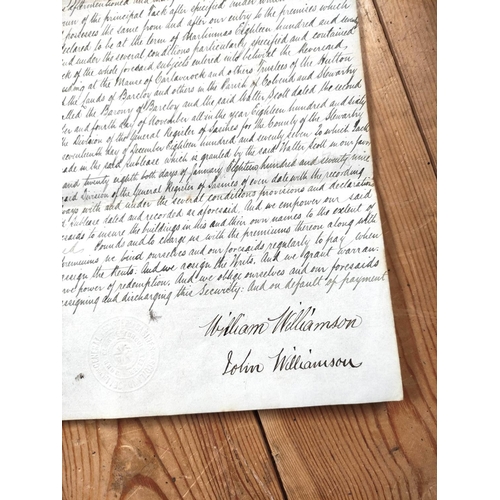 aforementioned and
of the principal Tack after specified under which
possesses the same from and after our entry to the premises which
declared to be at the term of Martinmas Eighteen hundred and seventy
and under the several conditions particularly specified and contained
of the whole foresaid subjects entered into betwixt the Reverend
at the Manse of Carlaverock and others Trustees of the Hutton
the lands of Barcloy and others in the Parish of Colvend and Stewartry
called the Barony of Barcloy and the said Walter Scott dated the second
and fourth day of November all in the year Eighteen hundred and sixty
the Division of the General Register of Sasines for the County of the Stewartry
seventeenth day of December Eighteen hundred and seventy seven To which Tack
made in the said Sublease which is granted by the said Walter Scott in our favor
and twenty eighth both days of January Eighteen hundred and seventy nine
said Division of the General Register of Sasines of even date with the recording
always with and under the several conditions provisions and declarations
Sublease dated and recorded as aforesaid. And we empower our said
to insure the buildings in his and their own names to the extent of
Pounds and to charge us with the premiums thereon along with
premiums we bind ourselves and our foresaids regularly to pay when
And we assign the Writs. And we grant warran:
power of redemption. And we oblige ourselves and our foresaids
assigning and discharging this Security: And on default of payment
William Williamson
John Williamson